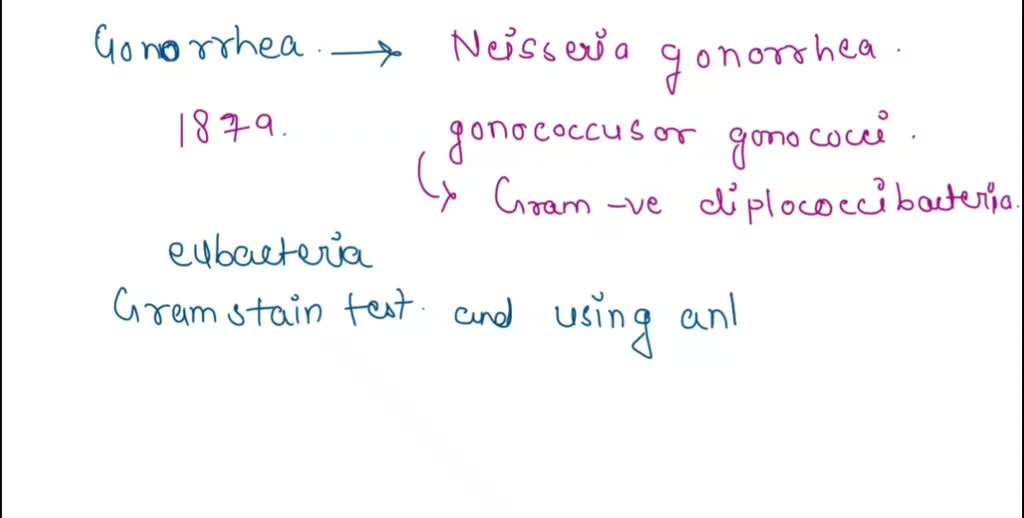 Gonorrhea. → Neisseria gonorrhea.
1879. gonococcus or gonococci.
↳ Gram -ve diplococci bacteria.
eubacteria
Gram stain test. and using ant